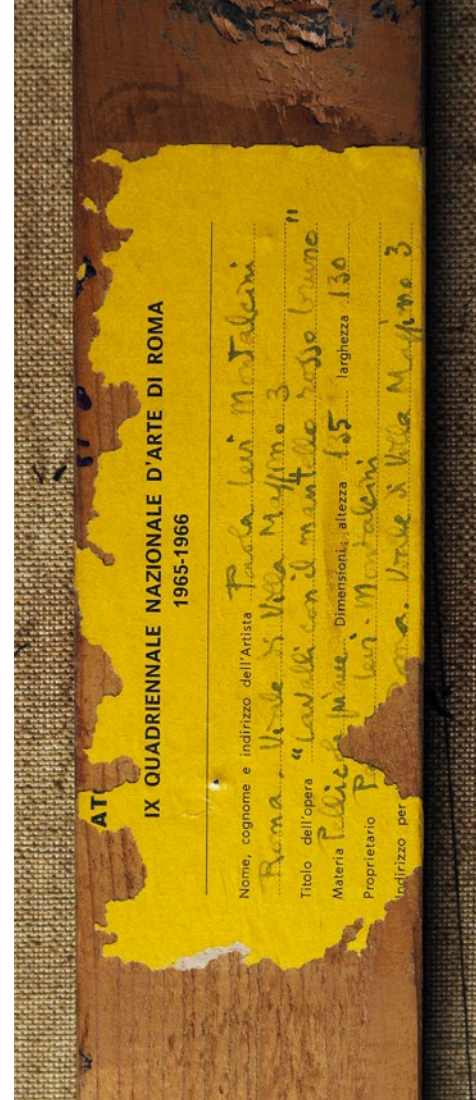 AT
IX QUADRIENNALE NAZIONALE D'ARTE DI ROMA
1965-1966
Nome, cognome e indirizzo dell'Artista Paola Levi Montalcini
Roma. Viale di Villa Massimo 3
Titolo dell'opera "Cavalli con il mantello rosso bruno"
Materia Dimensioni: altezza 135 larghezza 130
Proprietario Levi-Montalcini
Indirizzo per Viale di Villa Massimo 3